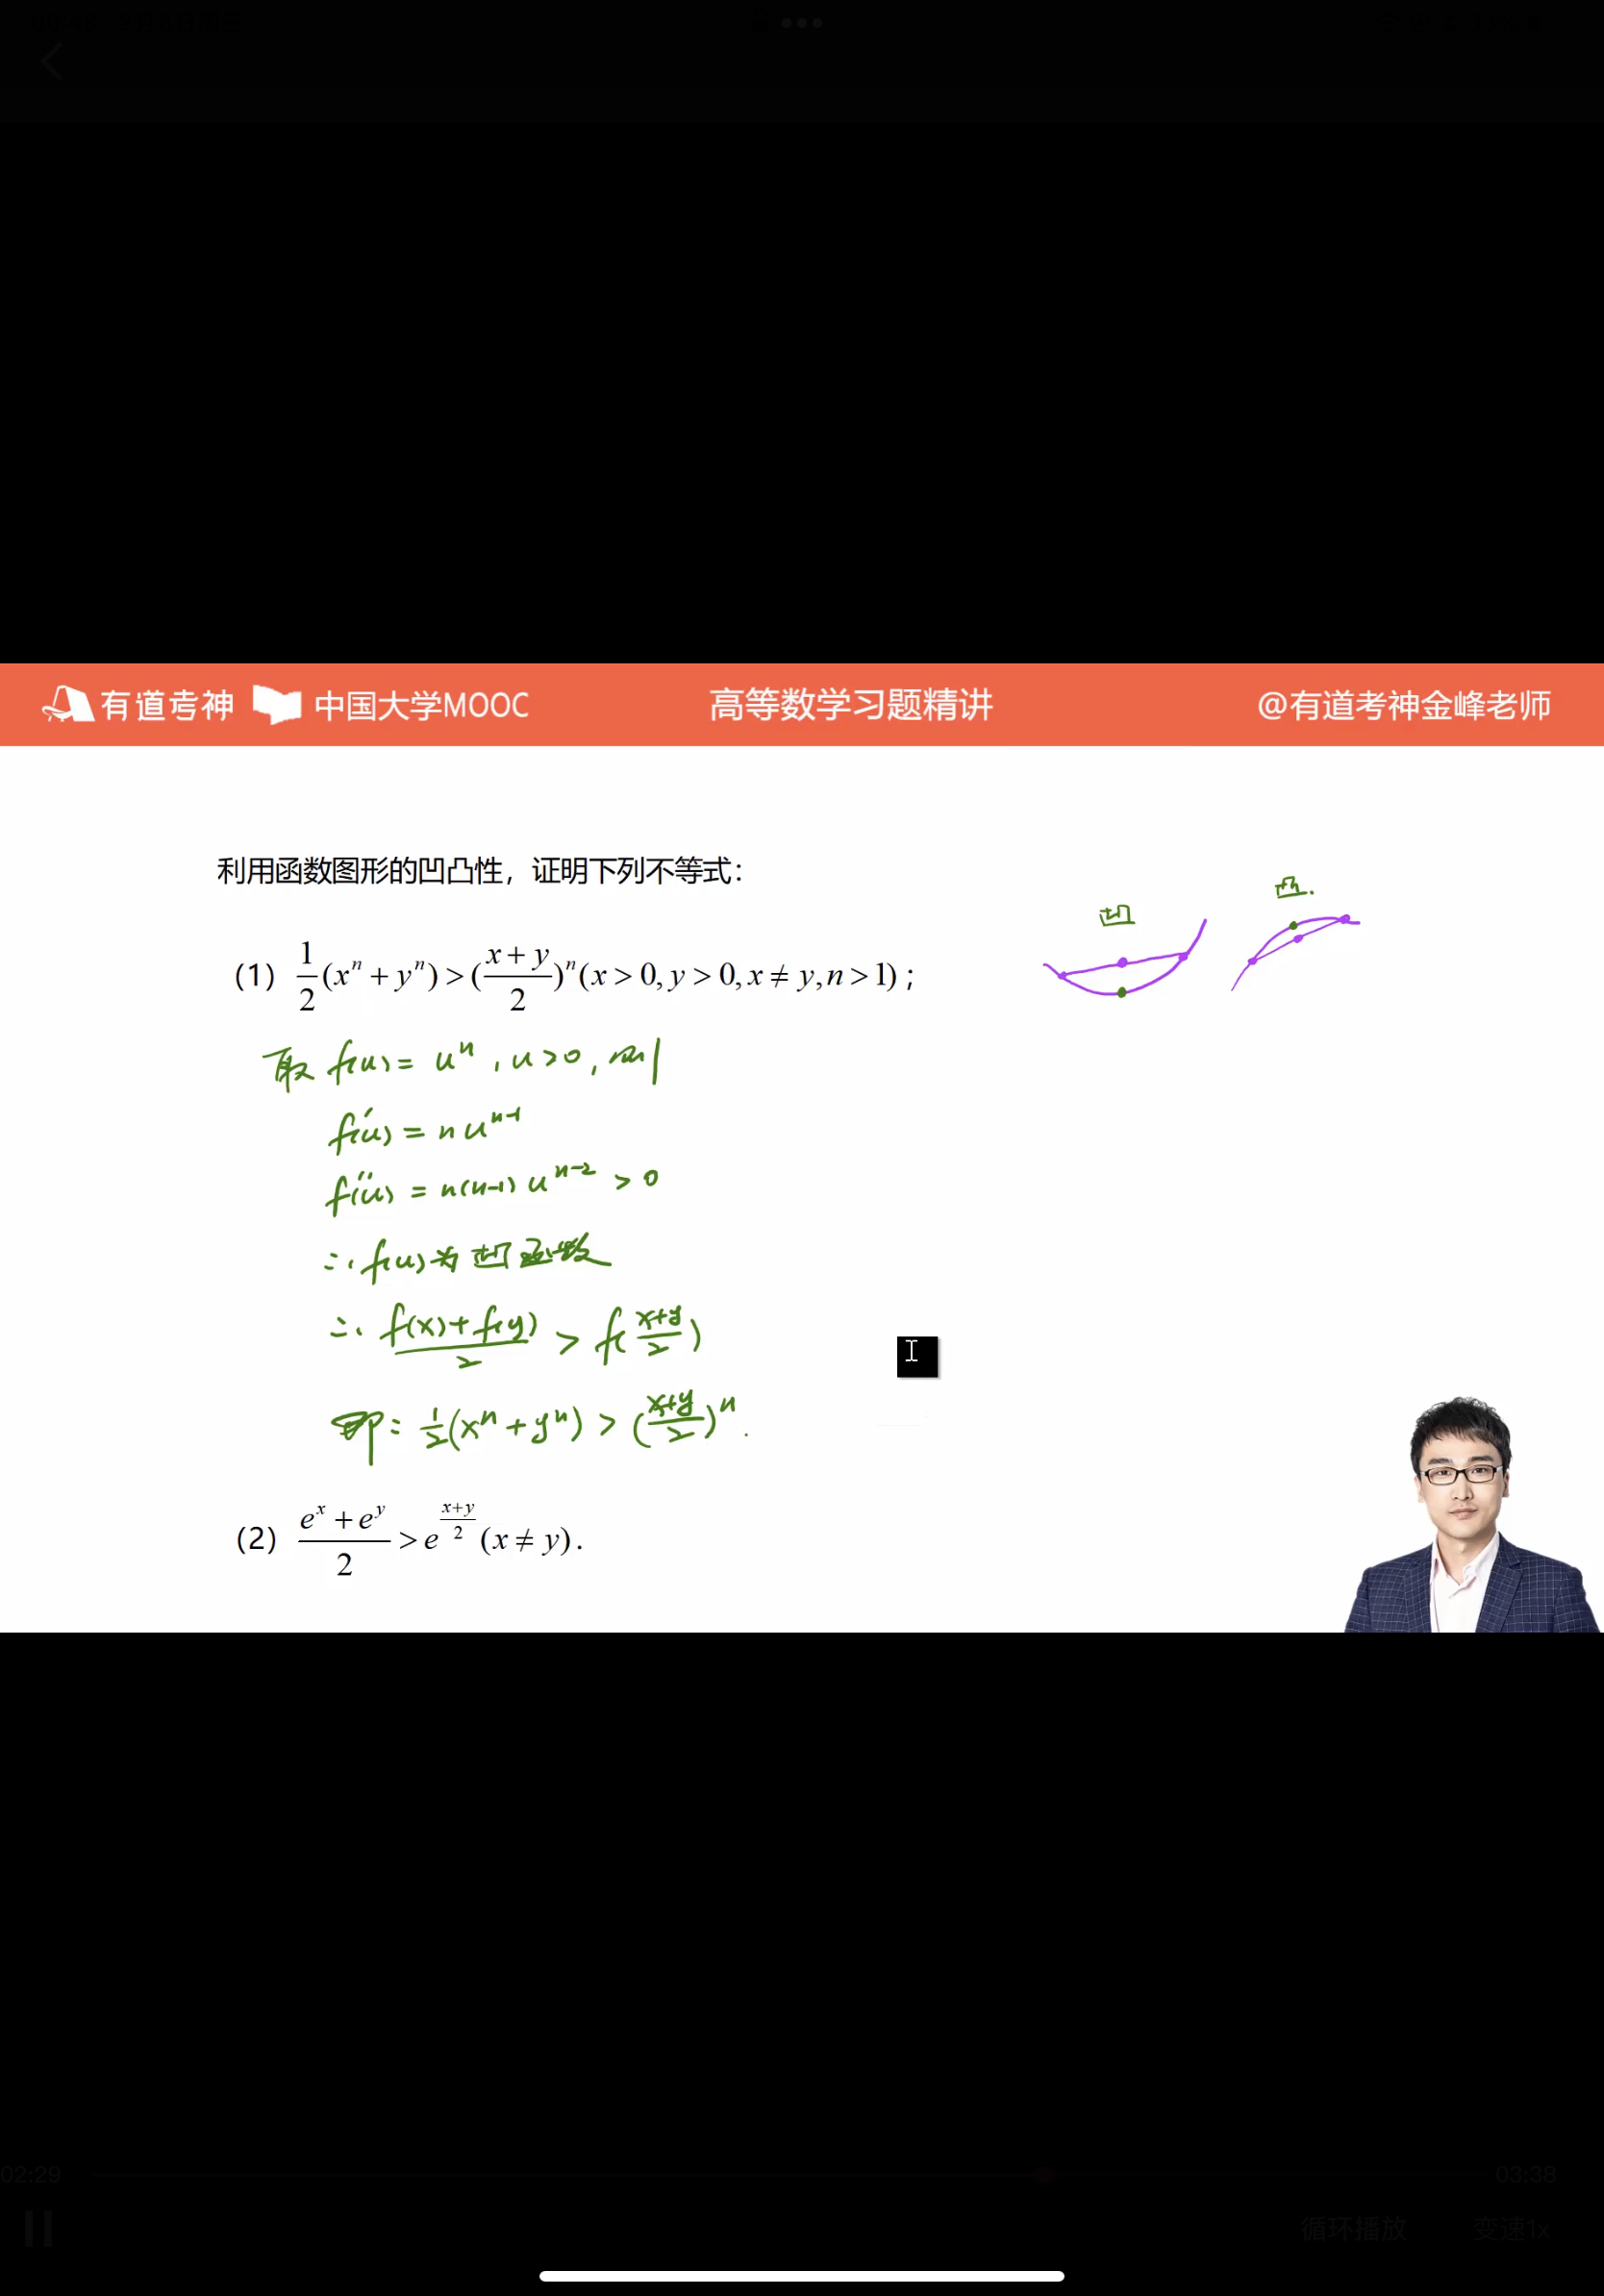 有道考神 中国大学MOOC 高等数学习题精讲 @有道考神金峰老师
利用函数图形的凹凸性，证明下列不等式：
凹 凸.
（1）\frac{1}{2}(x^n + y^n) > (\frac{x+y}{2})^n (x > 0, y > 0, x ≠ y, n > 1)；
取 f(u) = u^n , u > 0 , 则
f'(u) = n u^{n-1}
f''(u) = n(n-1) u^{n-2} > 0
∴ f(u) 为凹函数
∴ \frac{f(x)+f(y)}{2} > f(\frac{x+y}{2})
即: \frac{1}{2}(x^n + y^n) > (\frac{x+y}{2})^n .
（2）\frac{e^x + e^y}{2} > e^{\frac{x+y}{2}} (x ≠ y).
02:29 03:38
循环播放 变速1x